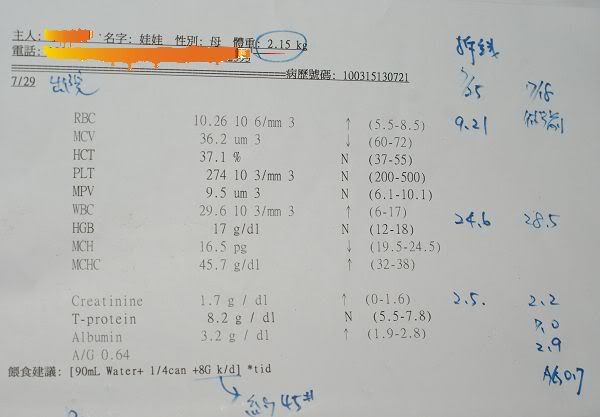 主人: 名字: 娃娃 性別: 母 體重: 2.15 kg
電話:
病歷號碼: 100315130721
7/29 出院
拆線
7/25 7/18
RBC 10.26 10 6/mm 3 ↑ (5.5-8.5) 9.21
MCV 36.2 um 3 ↓ (60-72)
HCT 37.1 % N (37-55)
PLT 274 10 3/mm 3 N (200-500)
MPV 9.5 um 3 N (6.1-10.1)
WBC 29.6 10 3/mm 3 ↑ (6-17) 24.6 28.5
HGB 17 g/dl N (12-18)
MCH 16.5 pg ↓ (19.5-24.5)
MCHC 45.7 g/dl ↑ (32-38)
Creatinine 1.7 g / dl ↑ (0-1.6) 2.5. 2.2
T-protein 8.2 g / dl N (5.5-7.8) 7.0
Albumin 3.2 g / dl ↑ (1.9-2.8) 2.9
A/G 0.64 A/G 0.7
餵食建議: [90mL Water+ 1/4can +8G k/d] *tid
約 45